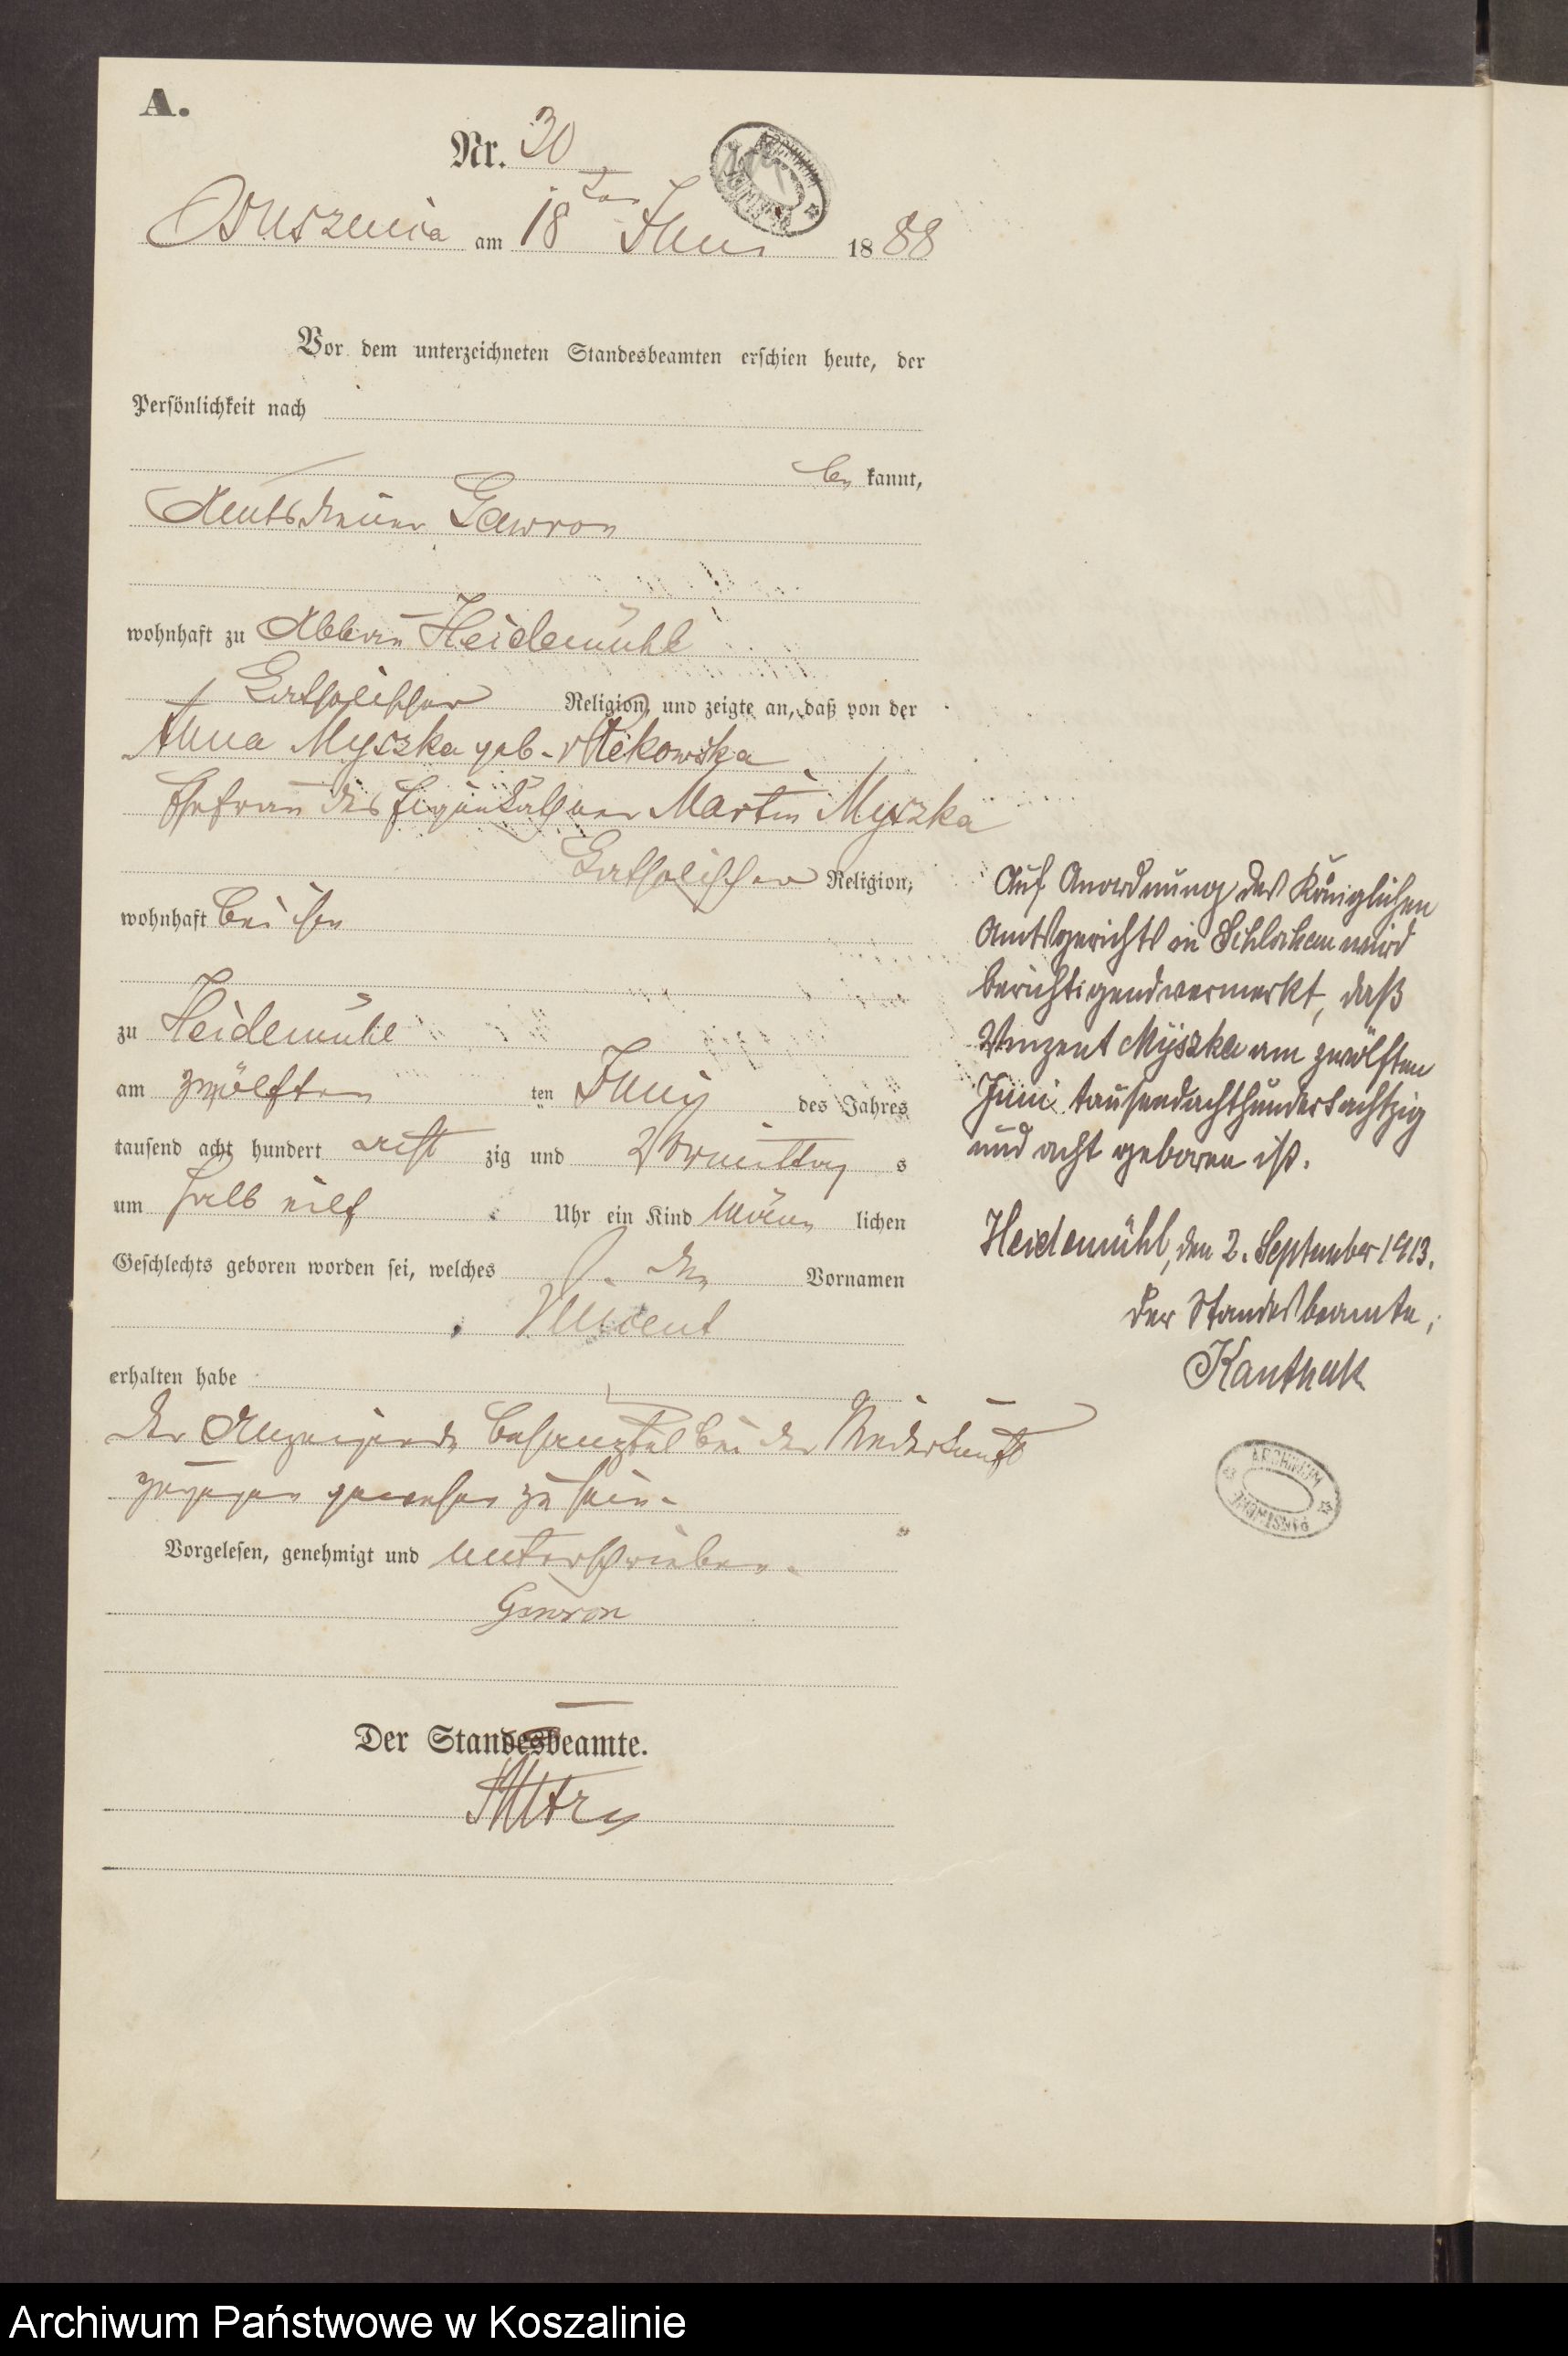 A.
Nr. 30
Osuszenica am 18ten Juni 1888
Vor dem unterzeichneten Standesbeamten erschien heute, der
Persönlichkeit nach
be kannt,
Amtsdiener Gawron
wohnhaft zu Abbau Heidemühl
katholischer Religion, und zeigte an, daß von der
Anna Myszka geb. v Rekowska
Ehefrau des Eigenkäthner Martin Myszka
katholischer Religion,
wohnhaft bei ihm
zu Heidemühl
am zwölften ten Juni des Jahres
tausend acht hundert acht zig und Vormittag s
um halb eilf Uhr ein Kind männ lichen
Geschlechts geboren worden sei, welches den Vornamen
Vincent
erhalten habe
der Anzeigende bei der Niederkunft
zugegen gewesen zu sein.
Vorgelesen, genehmigt und unterschrieben.
Gawron
Der Standesbeamte.
Auf Anordnung des Königlichen
Amtsgerichts in Schlochau wird
berichtigend vermerkt, daß
Vinzent Myszka am zwölften
Juni tausendachthundertachtzig
und acht geboren ist.
Heidemühl, den 2. September 1913.
Der Standesbeamte,
Kanthak
ARCHIWUM PAŃSTWOWE
Archiwum Państwowe w Koszalinie